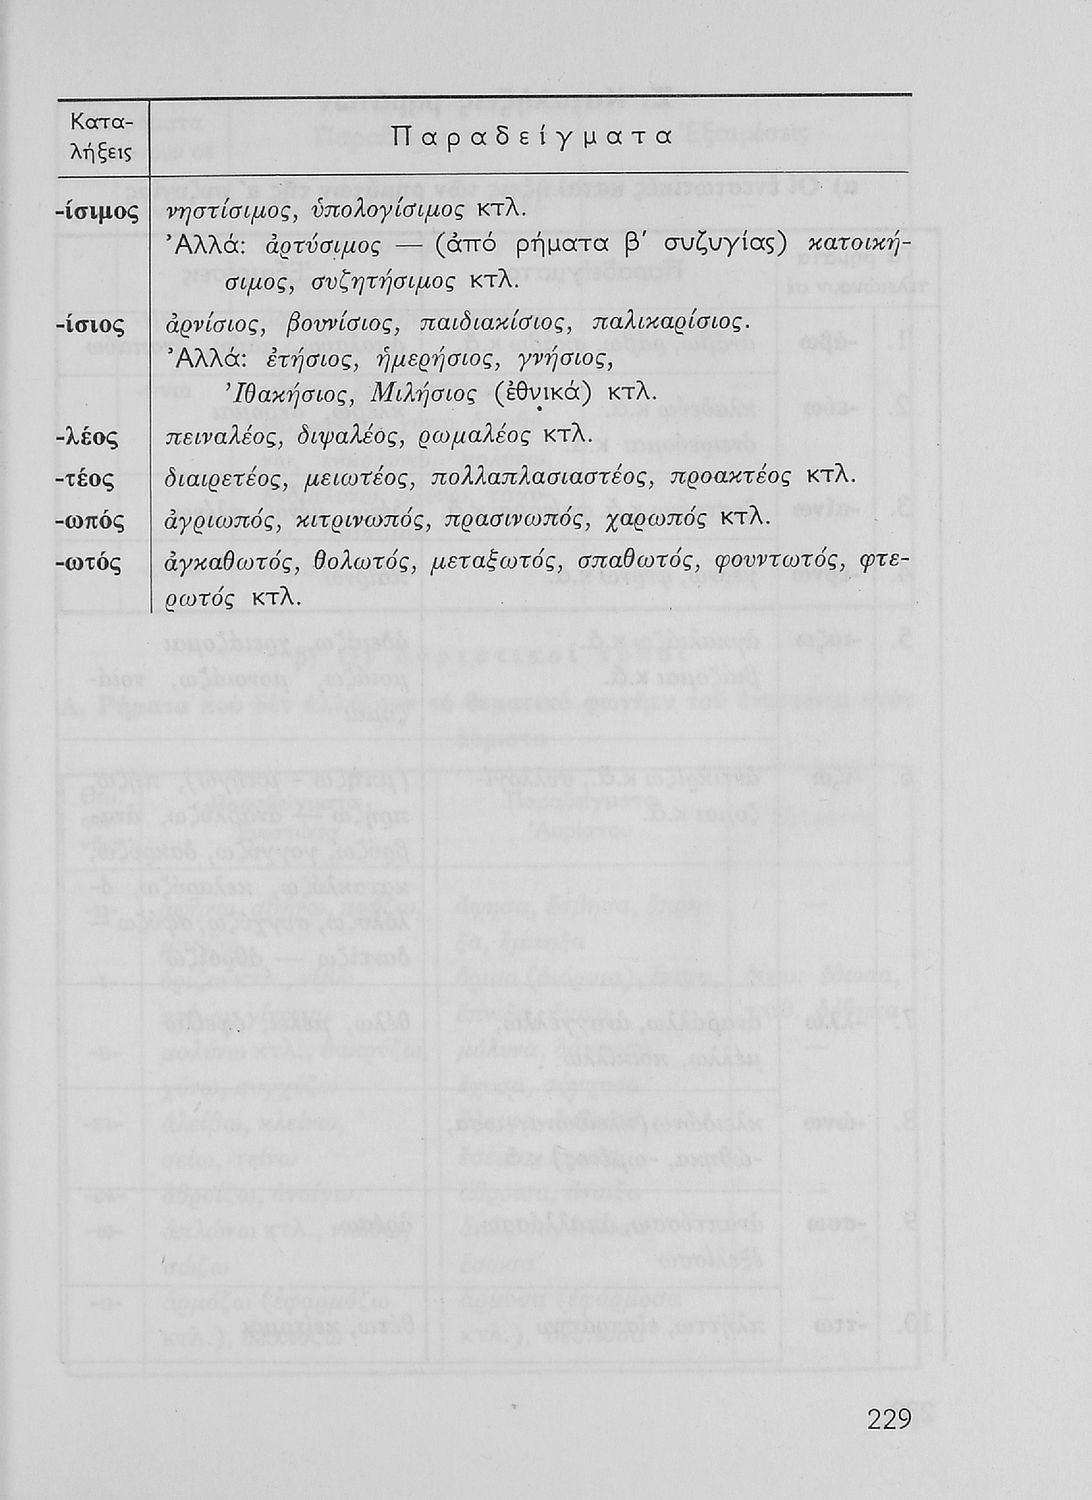 Κατα-
λήξεις
Παραδείγματα
-ίσιμος νηστίσιμος, ὑπολογίσιμος κτλ.
Ἀλλά: ἀρτύσιμος — (ἀπό ρήματα β′ συζυγίας) κατοική-
σιμος, συζητήσιμος κτλ.
-ίσιος ἀρνίσιος, βουνίσιος, παιδιακίσιος, παλικαρίσιος.
Ἀλλά: ἐτήσιος, ἡμερήσιος, γνήσιος,
Ἰθακήσιος, Μιλήσιος (ἐθνικά) κτλ.
-λέος πειναλέος, διψαλέος, ρωμαλέος κτλ.
-τέος διαιρετέος, μειωτέος, πολλαπλασιαστέος, προακτέος κτλ.
-ωπός ἀγριωπός, κιτρινωπός, πρασινωπός, χαρωπός κτλ.
-ωτός ἀγκαθωτός, θολωτός, μεταξωτός, σπαθωτός, φουντωτός, φτε-
ρωτός κτλ.
229